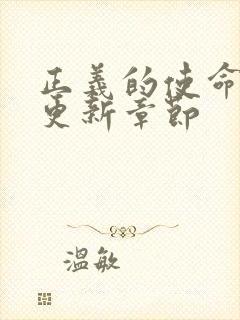 正義的使命
更新章節
溫敏